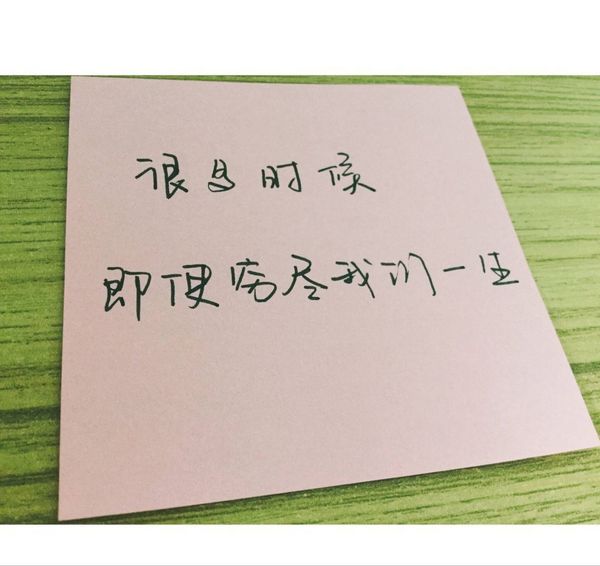 很多时候
即便穷尽我们一生